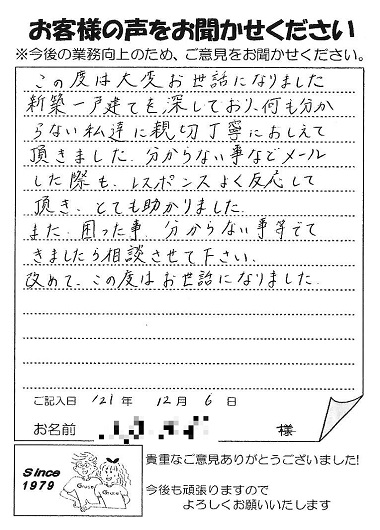 お客様の声をお聞かせください
※今後の業務向上のため、ご意見をお聞かせください。
この度は大変お世話になりました
新築一戸建てを探しており、何も分か
らない私達に親切丁寧におしえて
頂きました。分からない事などメール
した際も、レスポンスよく反応して
頂き、とても助かりました。
また、困った事、分からない事等でて
きましたら相談させて下さい。
改めて、この度はお世話になりました。
ご記入日 '21年 12月 6日
お名前 様
Since
1979
貴重なご意見ありがとうございました!
今後も頑張りますので
よろしくお願いいたします